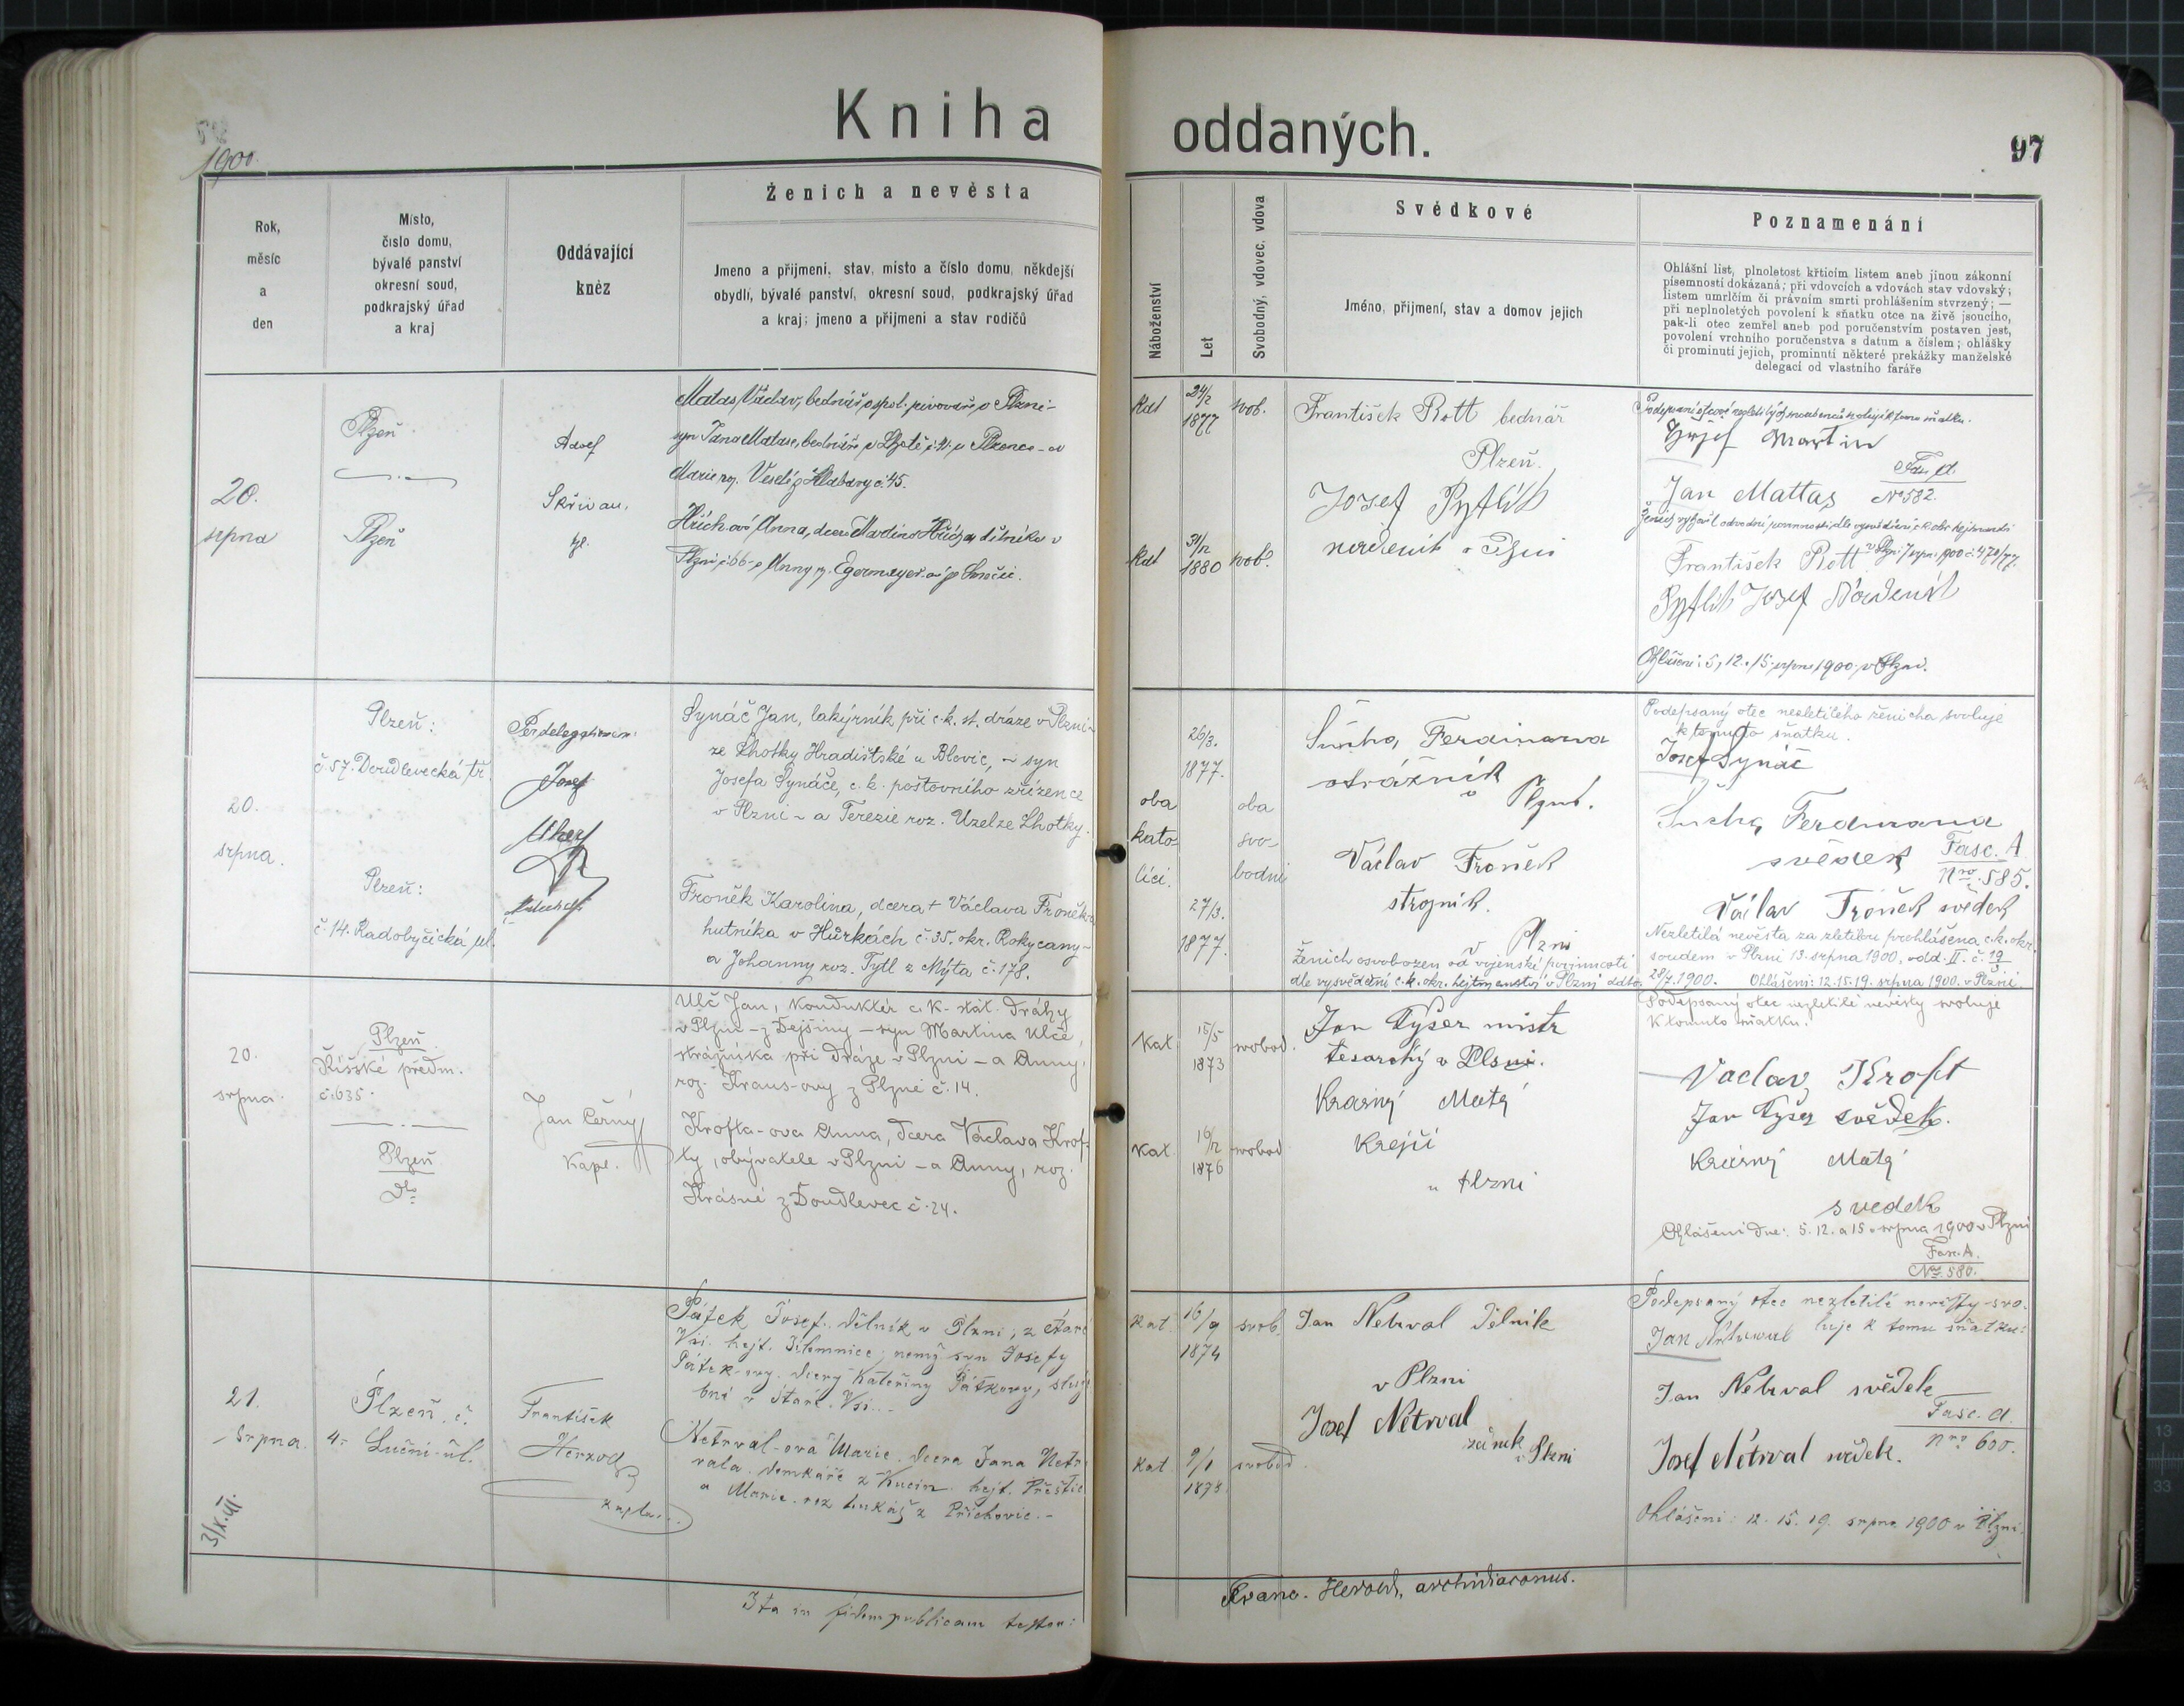 Kniha oddaných.
97
1900.
Ženich a nevěsta
Svědkové
Poznamenání
Rok,
měsíc
a
den
Místo,
číslo domu,
bývalé panství
okresní soud,
podkrajský úřad
a kraj
Oddávající
kněz
Jmeno a přijmeni, stav, místo a číslo domu, někdejší
obydlí, bývalé panství, okresní soud, podkrajský úřad
a kraj; jmeno a přijmeni a stav rodičů
Náboženství
Let
Svobodný, vdovec, vdova
Jméno, přijmení, stav a domov jejich
Ohlášní list, plnoletost křticím listem aneb jinou zákonní
písemností dokázaná; při vdovcích a vdovách stav vdovský;
listem umrlčím či právním smrti prohlášením stvrzený; —
při neplnoletých povolení k sňatku otce na živě jsoucího,
pak-li otec zemřel aneb pod poručenstvím postaven jest,
povolení vrchního poručenstva s datum a číslem; ohlášky
či prominutí jejich, prominutí některé prekážky manželské
delegací od vlastního faráře
20.
srpna
Plzeň
Plzeň
Adolf
Skřivan,
Matas Václav, bednář v spol. pivováře v Plzni -
syn Jana Matase, bednáře
Marie roz. Veselé z Hlabavy č. 45.
Hříchová Anna, dcera Martina Hřícha dělníka v
Plzni č. 66 - a Anny r. Egermeyer-ové z
kat
24/2
1877
svob.
kat
31/12
1880
svob.
František Rott bednář
Plzeň.
Josef Pytlík
v Plzni
Josef Martin
Fas. A.
Jan Mattas No 582.
František Rott
Pytlík Josef
Ohlášení: 5, 12. 15. srpna 1900. v Plzni.
20.
srpna.
Plzeň:
č. 57. Doudlevecká tř.
Plzeň:
č. 14. Radobyčická ul.
Per delegationem:
Josef
Synáč Jan, lakýrník při c. k. st. dráze v Plzni -
ze Lhotky Hradišťské u Blovic, - syn
Josefa Synáče, c. k. poštovního zřízence
v Plzni - a Terezie roz. Uzel ze Lhotky.
Froněk Karolina, dcera + Václava Froňka
hutníka v Hůrkách č. 35. okr. Rokycany -
a Johanny roz. Tytl z Mýta č. 178.
oba
kato
líci.
26/3.
1877.
27/3.
1877.
oba
svo-
bodni
Šucha Ferdinand
strážník
v Plzni.
Václav Froněk
strojník.
v Plzni
Ženich osvobozen od vojenské povinnosti
dle vysvědční c. k. okr. hejtmanství v Plzni ddto. 28/7. 1900.
Podepsaný otec nezletilého ženicha svoluje
k tomuto sňatku.
Josef Synáč
Šucha Ferdinand
svědek Fasc. A
Nro. 585.
Václav Froněk svědek
Nezletilá nevěsta za zletilou prohlášena c. k. okr.
soudem v Plzni 13. srpna 1900, odd. II. č. 19/3.
Ohlášeni: 12. 15. 19. srpna 1900. v Plzni.
20.
srpna.
Plzeň
Říšské předm.
č. 635.
Plzeň
dto
Jan Černý
Kapl.
Ulč Jan, Konduktér c. K. stát. dráhy
v Plzni - z Dejšiny - syn Martina Ulče,
strážníka při dráze v Plzni - a Anny,
roz. Kraus-ovy z Plzně č. 14.
Krofta-ova Anna, dcera Václava Krof-
ty, obývatele v Plzni - a Anny, roz.
Krásné z Doudlevec č. 24.
Kat.
15/5
1873
svobod.
Kat.
16/12
1876
svobod
Jan Tyšer mistr
tesarský v Plzni.
Krásný Matěj
Krejčí
v Plzni
Podepsaný otec nezletilé nevěsty svoluje
K tomuto sňatku.
Václav Kroft
Jan Tyšer svědek.
Krásný Matěj
svedek
Ohlášeni dne: 5. 12. a 15. srpna 1900 v Plzni
Fas. A.
Nro 580.
21.
srpna.
3/X. VII.
Plzeň. č.
4. Luční-ul.
František
Herzog
kaplan.
Pátek Josef. dělník v Plzni; z Staré
Vsi. hejt. Jilemnice; nemž. syn Josefy
Pátek-ovy. dcery Kateřiny Pátkovy, služ
bné v Staré. Vsi. -
Netrval-ova Marie. dcera Jana Netr-
vala. domkáře z Kucin. hejt. Přeštic
a Marie. roz Lukáš z Příchovic. -
Kat.
16/9
1874
svob.
Kat.
9/1
1878
svobod.
Jan Netrval Dělnik
v Plzni
Josef Netrval
v Plzni
Podepsaný otec nezletilé nevěsty svo-
luje k tomu sňatku:
Jan Netrwal
Jan Netrval svědek
Fasc. A.
Nro 600.
Josef Netrval svědek.
Ohlášeni: 12. 15. 19. srpna 1900 v Plzni.
Ita in fidem publicam testor:
Franc. Herold, archidiaconus.